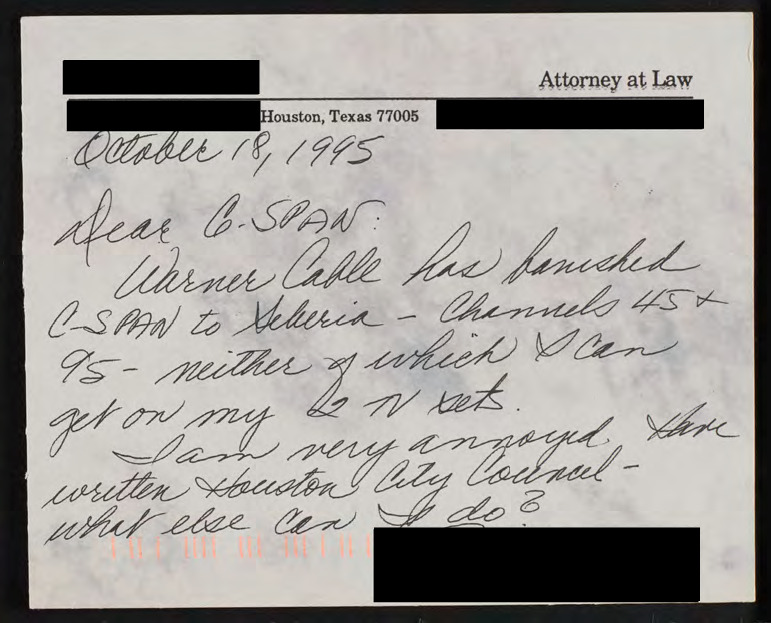 Attorney at Law
Houston, Texas 77005
October 18, 1995
Dear C-SPAN:
Warner Cable has banished
C-SPAN to Seberia - Channels 45 &
95 - neither of which I can
get on my 2 TV sets.
I am very annoyed. Have
written Houston City Council -
what else can I do?